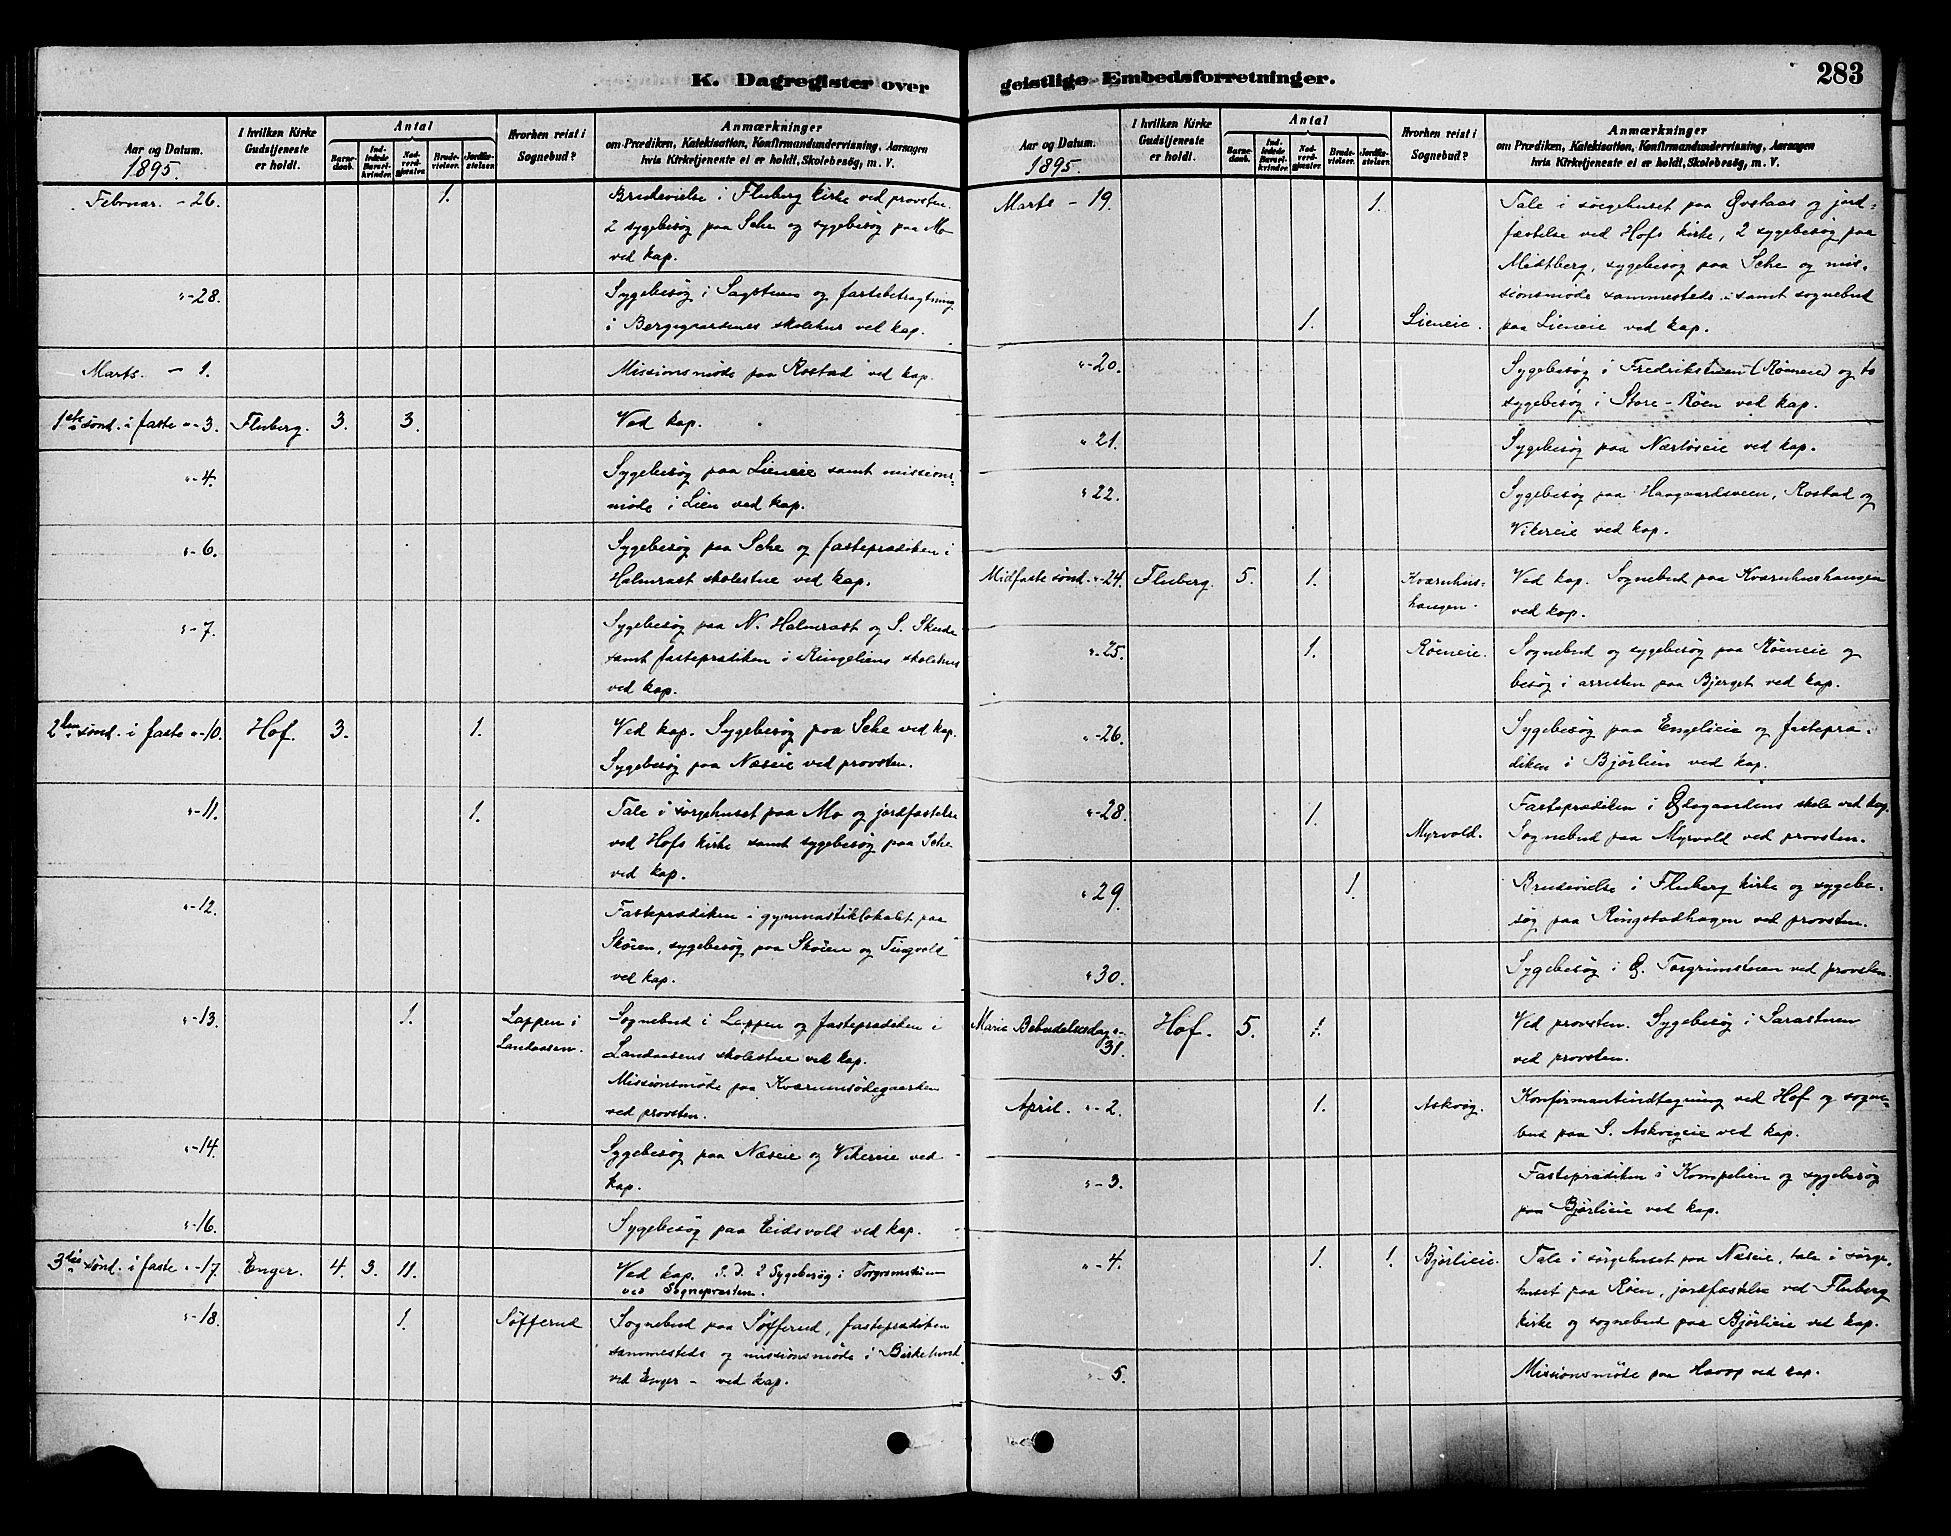 K. Dagregister over
Aar og Datum.
1895.
I hvilken Kirke Gudstjeneste er holdt.
Antal
Barnedaab.
Indledede Barselkvinder.
Nadverdgjester.
Brudevielser.
Jordfæstelser.
Hvorhen reist i Sognebud?
Anmærkninger
om Prædiken, Katekisation, Konfirmandundervisning, Aarsagen
hvis Kirketjeneste ei er holdt, Skolebesøg, m. V.
Februar. - 26. 1. Brudevielse i Fluberg kirke ved provsten.
2 sygebesøg paa Sche og sygebesøg paa Mo
ved kap.
"-28. Sygebesøg i Sagstuen og fastebetragtning
i Bergegaardenes skolehus ved kap.
Marts. - 1. Missionsmøde paa Rostad ved kap.
1ste sønd. i faste "-3. Fluberg. 3. 3. Ved kap.
"-4. Sygebesøg paa Lieneie samt missions-
møde i Lien ved kap.
"-6. Sygebesøg paa Sche og fasteprædiken i
Halmrast skolestue ved kap.
"-7. Sygebesøg paa N. Halmrast og S. Skude
samt fasteprædiken i Ringeliens skolehus
ved kap.
2den sønd. i faste "-10. Hof. 3. 1. Ved kap. Sygebesøg paa Sche ved kap.
Sygebesøg paa Næseie ved provsten.
"-11. 1. Tale i sørgehuset paa Mo og jordfæstelse
ved Hofs kirke samt sygebesøg paa Sche
ved kap.
"-12. Fasteprædiken i gymnastiklokalet paa
Skøien, sygebesøg paa Skøien og Tingvold
ved kap.
"-13. 1. Lappen i
Landaasen. Sognebud i Lappen og fasteprædiken i
Landaasens skolestue ved kap.
Missionsmøde paa Kværumsødegaarden
ved provsten.
"-14. Sygebesøg paa Næseie og Vikereie ved
kap.
"-16. Sygebesøg paa Eidsvold ved kap.
3die sønd. i faste "-17. Enger. 4. 3. 11. Ved kap. S. D. 2 Sygebesøg i Torgrimstuen
ved Sognepræsten.
"-18. 1. Søfferud Sognebud paa Søfferud, fasteprædiken
sammesteds og missionsmøde i Birkelund
ved Enger - ved kap.
geistlige Embedsforretninger.
283
Aar og Datum.
1895.
I hvilken Kirke Gudstjeneste er holdt.
Antal
Barnedaab.
Indledede Barselkvinder.
Nadverdgjester.
Brudevielser.
Jordfæstelser.
Hvorhen reist i Sognebud?
Anmærkninger
om Prædiken, Katekisation, Konfirmandundervisning, Aarsagen
hvis Kirketjeneste ei er holdt, Skolebesøg, m. V.
Marts - 19. 1. Tale i sørgehuset paa Øvstaas og jord-
fæstelse ved Hofs kirke, 2 sygebesøg paa
Midtberg, sygebesøg paa Sche og mis-
sionsmøde sammesteds samt sognebud
1. Lieneie. paa Lieneie ved kap.
"-20. Sygebesøg i Fredrikstuen (Røineie) og to
sygebesøg i Store-Røen ved kap.
"21. Sygebesøg paa Nærløseie ved kap.
"22. Sygebesøg paa Haagaardsveen, Rostad og
Vikereie ved kap.
Midfaste sønd. "-24. Fluberg. 5. 1. Kværnhus-
haugen. Ved kap. Sognebud paa Kværnhushaugen
ved kap.
"-25. 1. Røineie. Sognebud og sygebesøg paa Røineie og
besøg i arresten paa Bjerget ved kap.
"-26. Sygebesøg paa Engelieie og fastepræ-
diken i Bjørlien ved kap.
"-28. 1. Fasteprædiken i Ødegaardens skole ved kap.
Myrvold. Sognebud paa Myrvold ved provsten.
"29. 1. Brudevielse i Fluberg kirke og sygebe-
søg paa Ringstadhagen ved provsten.
"30. Sygebesøg i Ø. Torgrimstuen ved provsten.
Mariæ Bebudelsesdag "-
31. Hof. 5. 1. Ved provsten. Sygebesøg i Sarastuen
ved provsten.
April. "-2. 1. Askvig. Konfirmantindtegning ved Hof og sogne-
bud paa S. Askvigeie ved kap.
"-3. Fasteprædiken i Kompelien og sygebesøg
paa Bjørlieie ved kap.
"-4. 1. 1. Bjørlieie. Tale i sørgehuset paa Næseie, tale i sørge-
huset paa Røen, jordfæstelse ved Fluberg
kirke og sognebud paa Bjørlieie ved kap.
"-5. Missionsmøde paa Havop ved kap.